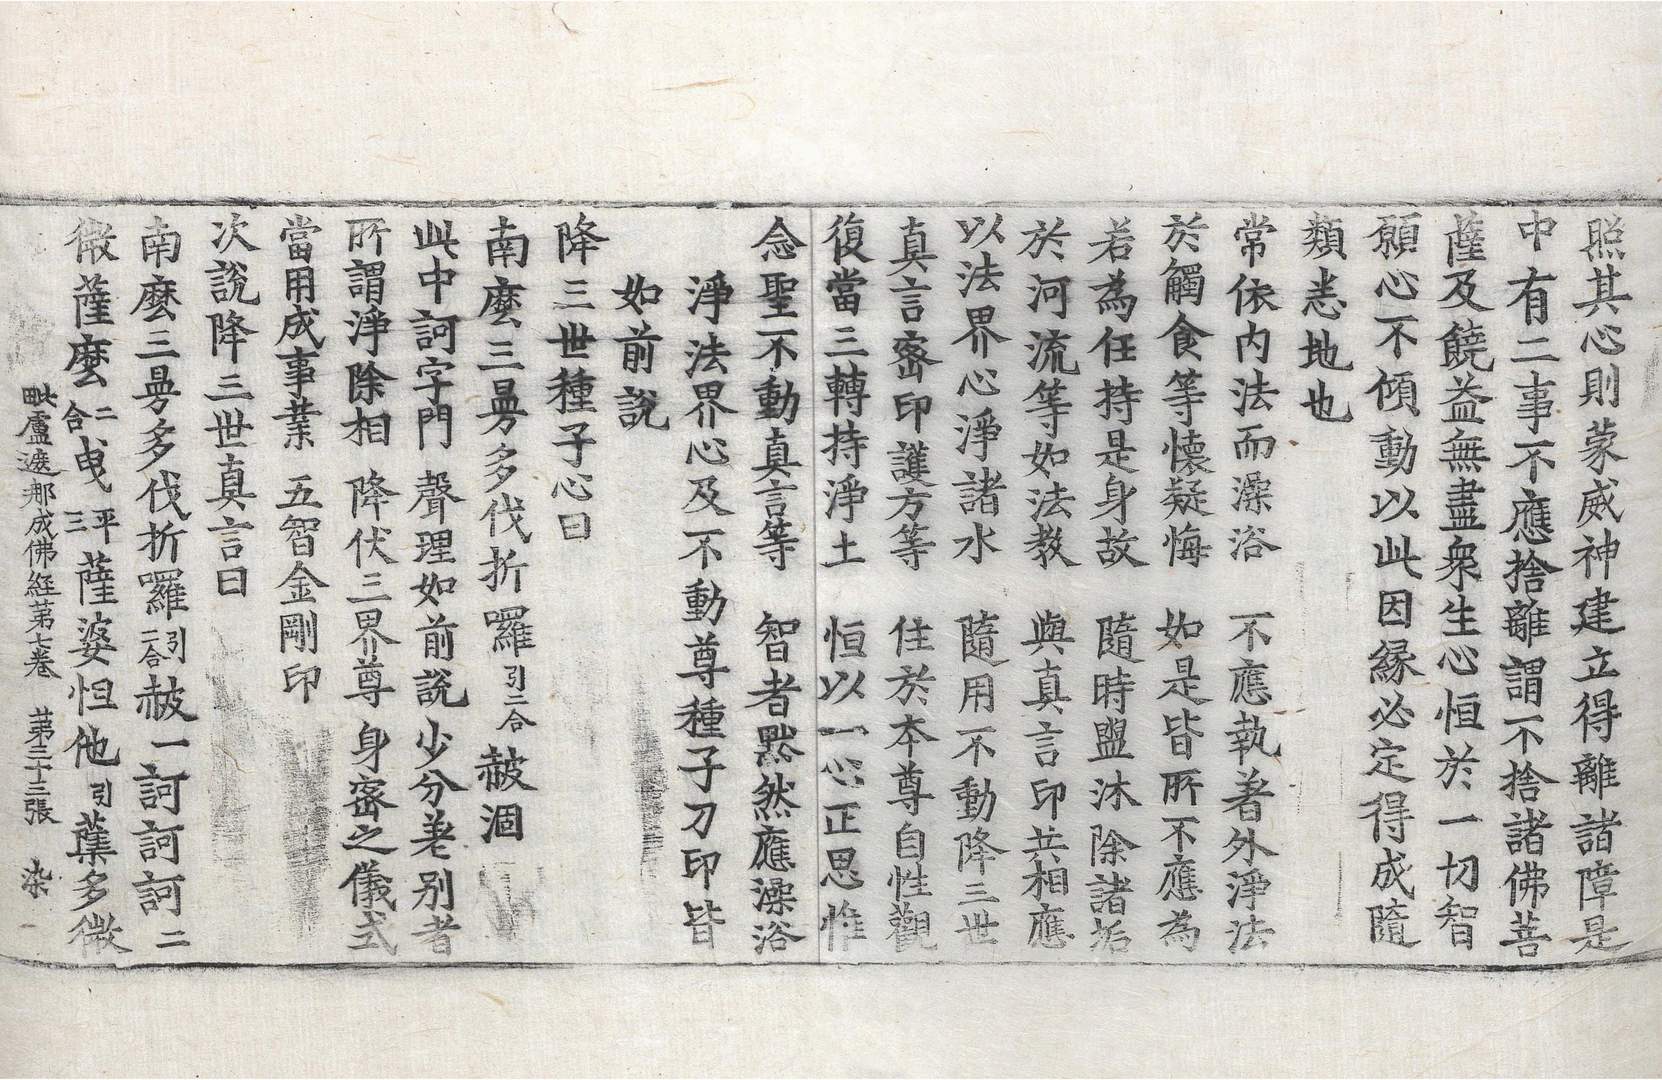 照其心則蒙威神建立得離諸障是
中有二事不應捨離謂不捨諸佛菩
薩及饒益無盡衆生心恒於一切智
願心不傾動以此因緣必定得成隨
類恚地也
常依內法而澡浴 不應執著外淨法
於觸食等懷疑悔 如是皆所不應為
若為任持是身故 隨時盥沐除諸垢
於河流等如法教 與真言印共相應
以法界心淨諸水 隨用不動降三世
真言密印護方等 住於本尊自性觀
復當三轉持淨土 恒以一心正思惟
念聖不動真言等 智者默然應澡浴
淨法界心及不動尊種子刀印皆
如前說
降三世種子心曰
南麼三曼多伐折囉引二合赧涸
此中訶字門 聲理如前說 少分差別者
所謂淨除相 降伏三界尊 身密之儀式
當用成事業 五智金剛印
次說降三世真言曰
南麼三曼多伐折囉引二合赧一訶訶訶二
微薩麼二合曳平三薩婆怛他引蘖多微
毗盧遮那成佛經第七卷 第三十三張 染